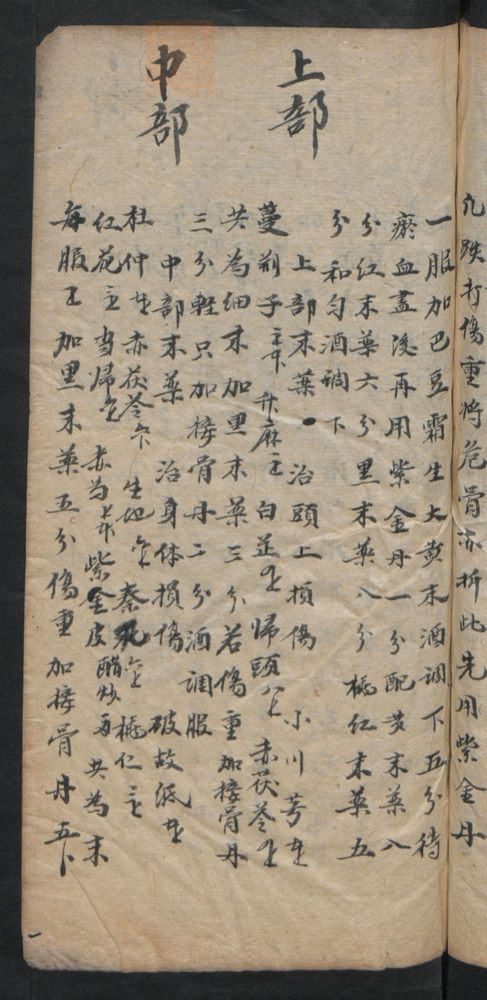 凡跌打傷重將危骨亦折此先用紫金丹
一服加巴豆霜生大黄末酒調下五分待
瘀血盡後再用紫金丹一分配黄末藥八
分紅末藥六分黑末藥八分桃紅末藥五
分和匀酒調下
上部
上部末藥 治頭上損傷 小川芎
蔓荆子 升麻 白芷 歸頭 赤茯苓
共為細末加黑末藥三分若傷重加接骨丹
三分輕只加接骨丹二分酒調服
中部
中部末藥 治身体損傷 破故紙
杜仲 赤茯苓 生地 秦艽 桃仁
紅花 當歸 赤芍 紫金皮醋炒 共為末
每服 加黑末藥五分傷重加接骨丹五